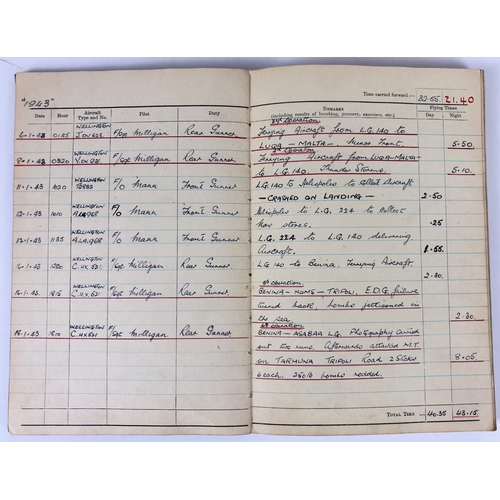 "1943"
Date Hour Aircraft Type and No. Pilot Duty
6.1.43 0145 WELLINGTON F/Sgt Milligan Rear Gunner
8.1.43 0320 WELLINGTON F/Sgt Milligan Rear Gunner
11.1.43 1020 WELLINGTON F/O Mann Front Gunner
12.1.43 1010 WELLINGTON F/O Mann Front Gunner
12.1.43 1135 WELLINGTON F/O Mann Front Gunner
.1.43 WELLINGTON F/Sgt Milligan Rear Gunner
.1.43 1815 WELLINGTON F/Sgt Milligan Rear Gunner
18.1.43 1810 WELLINGTON F/Sgt Milligan Rear Gunner
Time carried forward :— 32.55 21.40
REMARKS Flying Times
(including results of bombing, gunnery, exercises, etc.) Day Night
Operation
Ferrying Aircraft from L.G. 140 to
LUQA - MALTA - Front. 5.50
Operation
Ferrying Aircraft from LUQA-MALTA
to L.G. 140. Thunder Storms. 5.10
LG 140 to Heliopolis to collect Aircraft
— CRASHED ON LANDING — 2.50
Heliopolis to L.G. 224 to collect
stores. .25
L.G. 224 to L.G. 140 delivering
Aircraft. 1.55
LG 140 to Benina. Ferrying Aircraft
2.30
Operation
BENINA - HOMS - TRIPOLI. failure
turned back, bombs jettisoned in
the sea 2.30
Operation
BENINA - L.G. Photography carried
out two runs. Afterwards attacked M.T.
on TARHUNA TRIPOLI Road 8.05
250lb bombs
TOTAL TIME 40.35 43.15